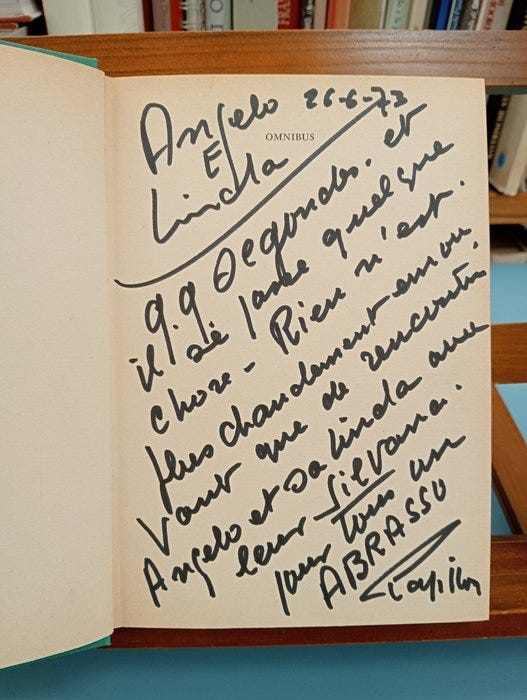 Angelo 26-6-73
E
Linda
OMNIBUS
9.9 Segondes. et
il se passe quelque
chose - Rien n'est.
plus chaudement emou
vant que de rencontrer
Angelo et sa Linda avec
leur Silvana.
pour tous un
ABRASSO
Papillon